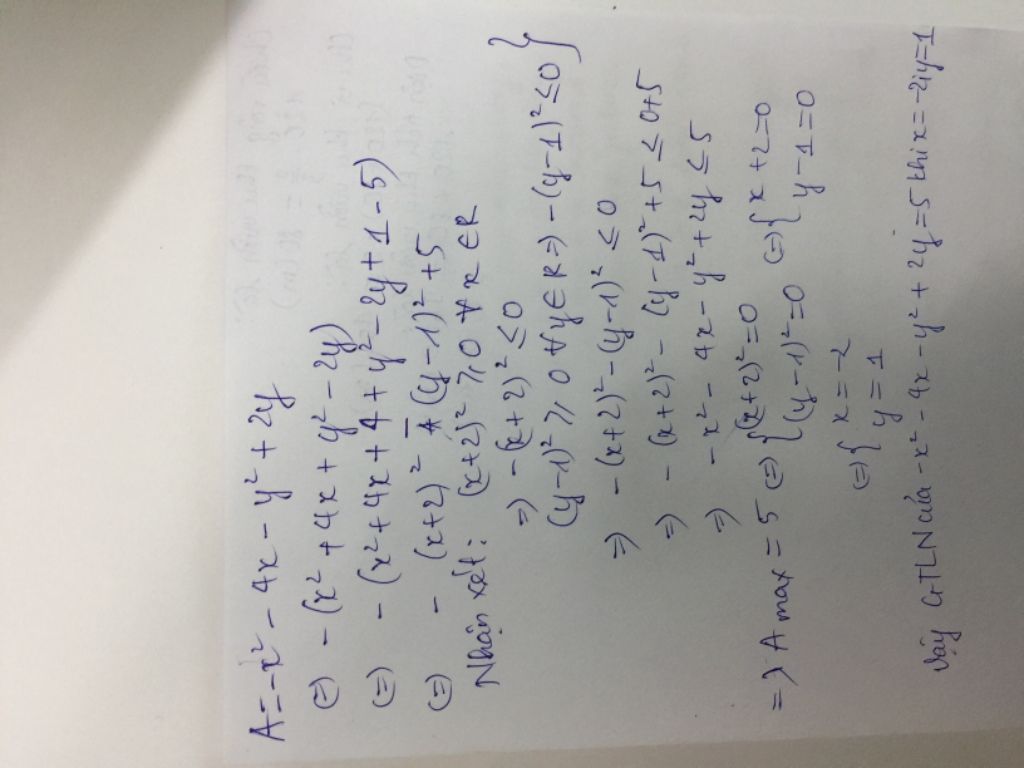 A = -x² - 4x - y² + 2y
(=) - (x² + 4x + y² - 2y)
(=) - (x² + 4x + 4 + y² - 2y + 1 - 5)
(=) - (x+2)² - (y-1)² + 5
Nhận xét: (x+2)² ≥ 0 ∀ x ∈ R
=) - (x+2)² ≤ 0
(y-1)² ≥ 0 ∀ y ∈ R =) - (y-1)² ≤ 0 }
=) - (x+2)² - (y-1)² ≤ 0
=) - (x+2)² - (y-1)² + 5 ≤ 0+5
=) - x² - 4x - y² + 2y ≤ 5
=) A max = 5 (=) { (x+2)² = 0 (=) { x+2=0
(y-1)² = 0 y-1=0
(=) { x = -2
y = 1
Vậy GTLN của -x² - 4x - y² + 2y = 5 khi x = -2; y = 1